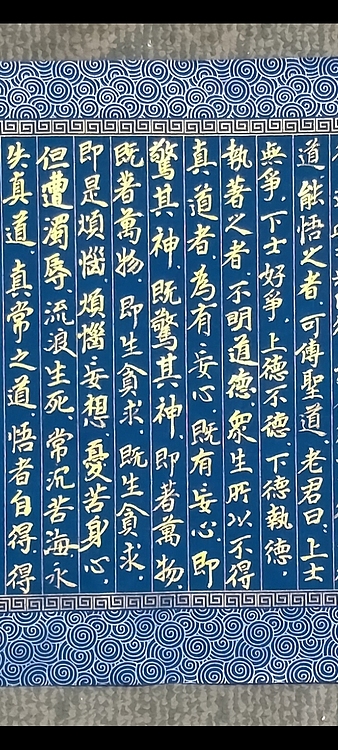 道，能悟之者，可傳聖道。老君曰，上士
無爭，下士好爭，上德不德，下德執德，
執著之者，不明道德，眾生所以不得
真道者，為有妄心，既有妄心，即
驚其神，既驚其神，即著萬物，
既著萬物，即生貪求，既生貪求，
即是煩惱，煩惱妄想，憂苦身心，
但遭濁辱，流浪生死，常沉苦海，永
失真道，真常之道，悟者自得，得